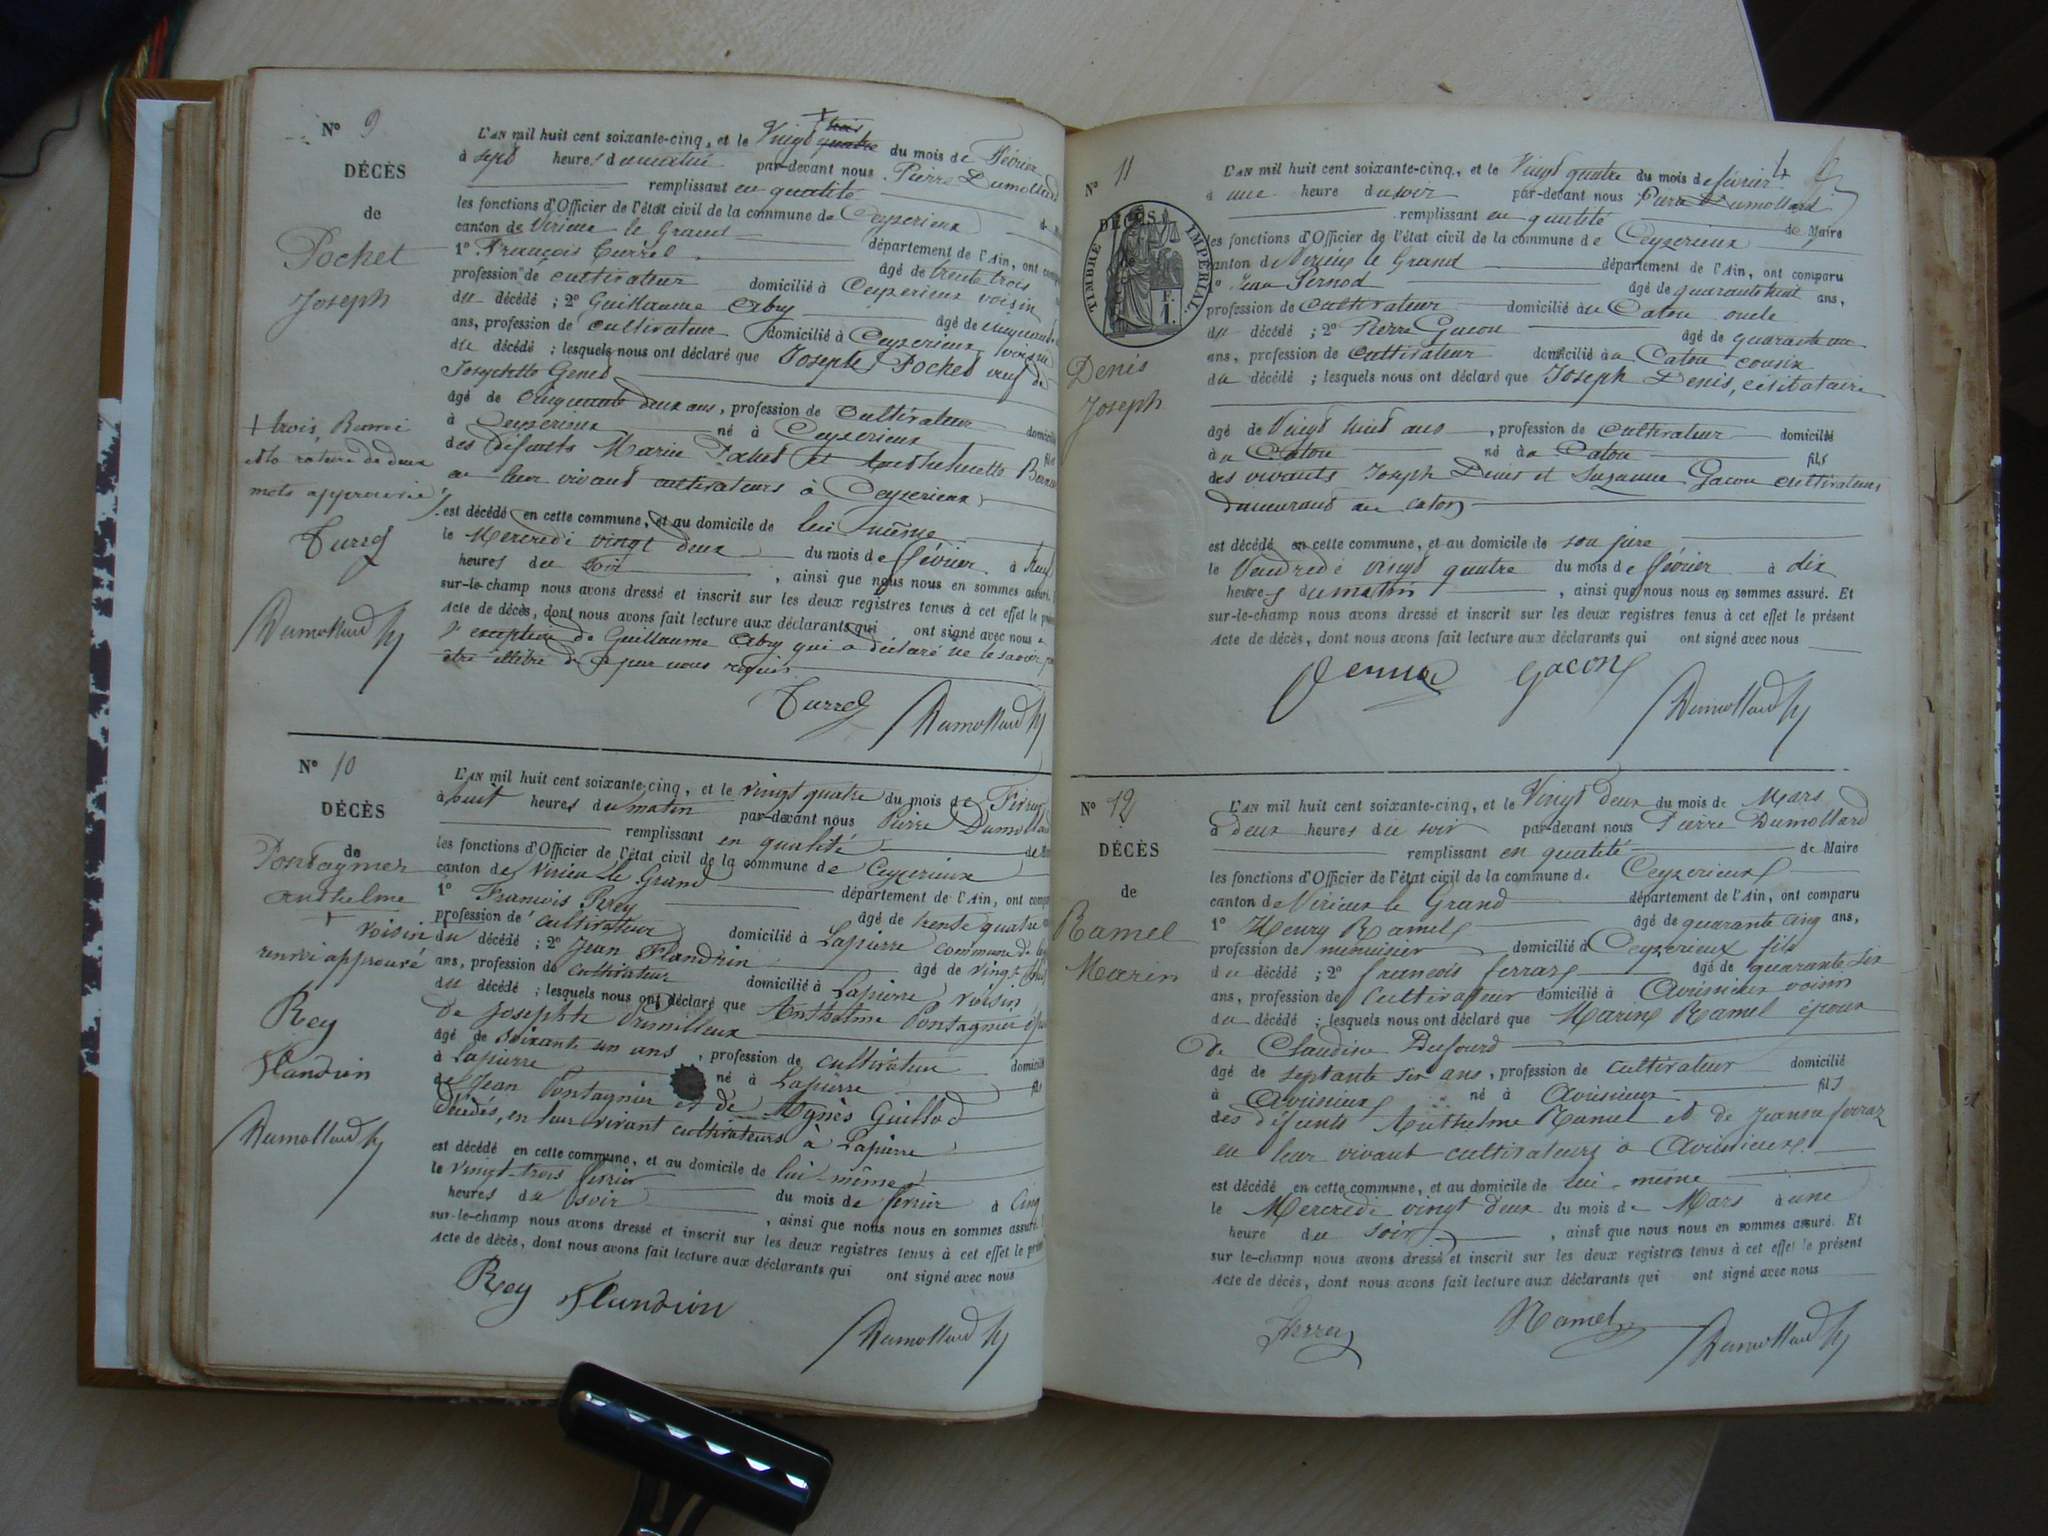 N° 9
DÉCÈS
de
Pochet
Joseph
+ trois, Renvoi
et la rature de deux
mots approuvée
Turrel
Dumollard
L'AN mil huit cent soixante-cinq, et le Vingt quatre + trois du mois de Février
à sept heures du matin par-devant nous Pierre Dumollard
remplissant en qualité de
les fonctions d'Officier de l'état civil de la commune de Ceyzerieux
canton de Virieu le Grand département de l'Ain, ont comp
1° François Turrel âgé de trente trois
profession de cultivateur domicilié à Ceyzerieux voisin
du décédé ; 2° Guillaume Abry âgé de cinquante
ans, profession de cultivateur domicilié à Ceyzerieux, voisin
du décédé ; lesquels nous ont déclaré que Joseph Pochet veuf de
Josephette Genet
âgé de cinquante deux ans, profession de cultivateur domicilié
à Ceyzerieux né à Ceyzerieux fils
des défunts Marin Pochet et
en leur vivant cultivateurs à Ceyzerieux
est décédé en cette commune, et au domicile de lui même
le Mercredi vingt deux du mois de février à
heures du soir , ainsi que nous nous en sommes assuré.
sur-le-champ nous avons dressé et inscrit sur les deux registres tenus à cet effet le pré
Acte de décès, dont nous avons fait lecture aux déclarants qui ont signé avec nous à
l'exception de Guillaume Abry qui a déclaré ne le savoir
être illitré de ce par nous requis
Turrel Dumollard
N° 10
DÉCÈS
de
Pontagnier
Anthelme
+ voisin
renvoi approuvé
Rey
Flandrin
Dumollard
L'AN mil huit cent soixante-cinq, et le vingt quatre du mois de Février
à huit heures du matin par-devant nous Pierre Dumollard
remplissant en qualité de
les fonctions d'Officier de l'état civil de la commune de Ceyzerieux
canton de Virieu le Grand département de l'Ain, ont comp
1° François Rey âgé de trente quatre
profession de cultivateur domicilié à Lapierre commune de
du décédé ; 2° Jean Flandrin âgé de vingt
ans, profession de cultivateur domicilié à Lapierre, voisin
du décédé ; lesquels nous ont déclaré que Anthelme Pontagnier
de Josephte
âgé de soixante un ans , profession de cultivateur domicilié
à Lapierre né à Lapierre fils
de Jean Pontagnier et de Agnès Guillod
décédés, en leur vivant cultivateurs à Lapierre
est décédé en cette commune, et au domicile de lui-même
le vingt-trois février du mois de février à cinq
heures du soir , ainsi que nous nous en sommes assuré.
sur-le-champ nous avons dressé et inscrit sur les deux registres tenus à cet effet le prés
Acte de décès, dont nous avons fait lecture aux déclarants qui ont signé avec nous
Rey Flandrin
Dumollard
N° 11
DÉCÈS
TIMBRE IMPÉRIAL
F.
1.
Denis
Joseph
L'AN mil huit cent soixante-cinq, et le Vingt quatre du mois de février
à une heure du soir par-devant nous Pierre Dumollard
remplissant en qualité de Maire
les fonctions d'Officier de l'état civil de la commune de Ceyzerieux
canton de Virieu le Grand département de l'Ain, ont comparu
1° Jean Pernod âgé de quarante huit ans,
profession de cultivateur domicilié à au Caton oncle
du décédé ; 2° Pierre Gacon âgé de quarante un
ans, profession de cultivateur domicilié à au Caton cousin
du décédé ; lesquels nous ont déclaré que Joseph Denis, célibataire
âgé de Vingt huit ans , profession de cultivateur domicilié
à au Caton né à au Caton fils
des vivants Joseph Denis et Suzanne Gacon cultivateurs
demeurant au Caton
est décédé en cette commune, et au domicile de son père
le Vendredi vingt quatre du mois de février à dix
heures du matin , ainsi que nous nous en sommes assuré. Et
sur-le-champ nous avons dressé et inscrit sur les deux registres tenus à cet effet le présent
Acte de décès, dont nous avons fait lecture aux déclarants qui ont signé avec nous
Gacon
Dumollard
N° 12
DÉCÈS
de
Ramel
Marin
L'AN mil huit cent soixante-cinq, et le Vingt deux du mois de Mars
à deux heures du soir par-devant nous Pierre Dumollard
remplissant en qualité de Maire
les fonctions d'Officier de l'état civil de la commune de Ceyzerieux
canton de Virieux le Grand département de l'Ain, ont comparu
1° Henry Ramel âgé de quarante cinq ans,
profession de menuisier domicilié à Ceyzerieux fils
du décédé ; 2° françois ferraz âgé de quarante six
ans, profession de cultivateur domicilié à Avrissieux voisin
du décédé ; lesquels nous ont déclaré que Marin Ramel époux
de Claudine Dufourd
âgé de septante six ans, profession de cultivateur domicilié
à Avrissieux né à Avrissieux fils
des défunts Anthelme Ramel et de Jeanne ferraz
en leur vivant cultivateurs à Avrissieux
est décédé en cette commune, et au domicile de lui-même
le Mercredi vingt deux du mois de Mars à une
heure du soir , ainsi que nous nous en sommes assuré. Et
sur le-champ nous avons dressé et inscrit sur les deux registres tenus à cet effet le présent
Acte de décès, dont nous avons fait lecture aux déclarants qui ont signé avec nous
Ramel
Dumollard